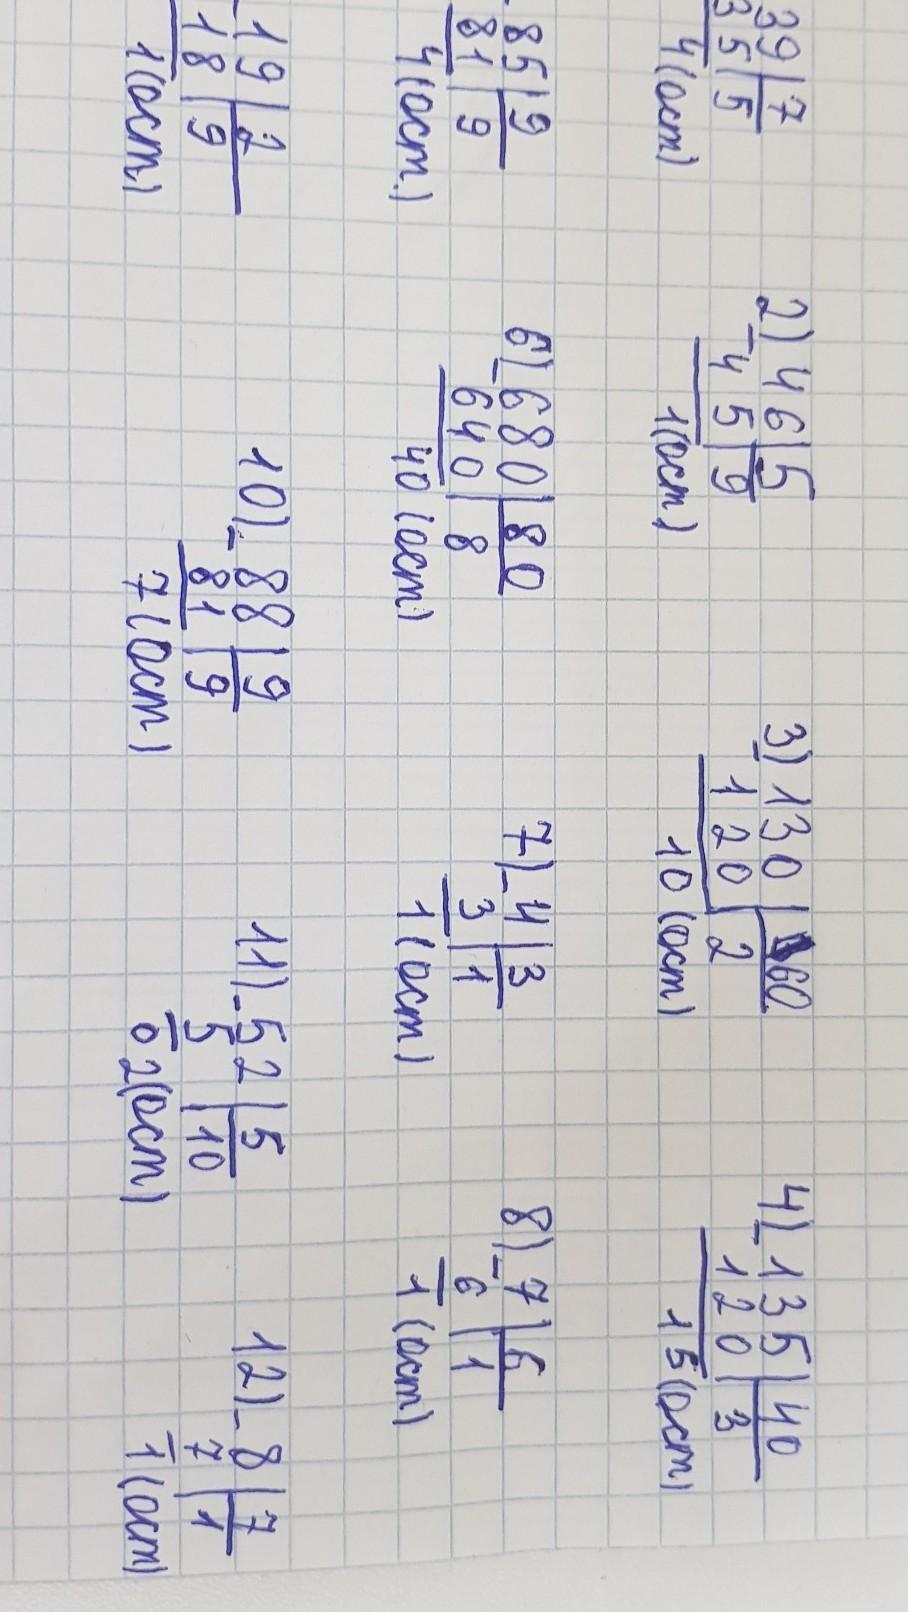 39 7 2) 46 5 3) 130 60 4) 135 40
35 5 - 45 9 - 120 2 - 120 3
4 (ост) 1 (ост) 10 (ост) 15 (ост)
85 9 6) 680 80 7) 4 3 8) 7 6
81 9 - 640 8 - 3 1 - 6 1
4 (ост.) 40 (ост) 1 (ост) 1 (ост)
- 19 2 10) 88 9 11) 52 5 12) 8 7
18 9 - 81 9 - 5 10 - 7 1
1 (ост.) 7 (ост) 02 (ост) 1 (ост)